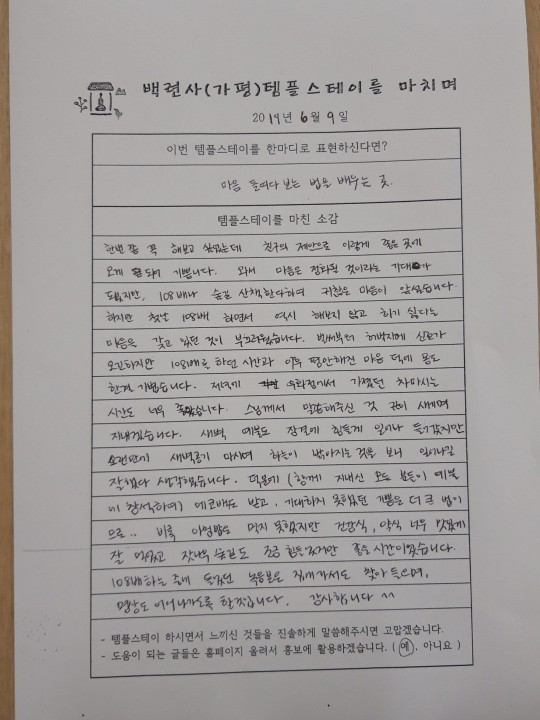 백련사(가평)템플스테이를 마치며
2019년 6월 9일
이번 템플스테이를 한마디로 표현하신다면?
마음 들여다 보는 법을 배우는 곳.
템플스테이를 마친 소감
한번 쯤 꼭 해보고 싶었는데 친구의 제안으로 이렇게 좋은 곳에
오게 되어 기쁩니다. 와서 마음은 정화될 것이라는 기대가
되었지만, 108배나 숲길 산책한다하여 귀찮은 마음이 앞섰습니다.
하지만 첫날 108배 하면서 역시 해보지 않고 하기 싫다는
마음을 갖고 있던 것이 부끄러웠습니다. 벌써부터 허벅지에 신호가
오긴하지만 108배를 하던 시간과 이후 평안해진 마음 덕에 몸도
한결 가볍습니다. 저녁에 우화정에서 가졌던 차마시는
시간도 너무 좋았습니다. 스님께서 말씀해주신 것 깊이 새기며
지내겠습니다. 새벽 예불도 잠결에 힘들게 일어나 들어갔지만
소편안히 새벽공기 마시며 하늘이 밝아지는 것을 보니 일어나길
잘했다 생각했습니다. 덕분에 (함께 지내신 모든 분들이 예불
에 참석하여) 에코백도 받고, 기대하지 못했던 기쁨은 더 큰 법이
므로.. 비록 아침밥은 먹지 못했지만 건강식, 약식 너무 맛있게
잘 먹었고 잣나무 숲길도 조금 힘은 들었지만 좋은 시간이었습니다.
108배하는 중에 들었던 녹음본은 집에가서도 찾아 들으며,
명상도 이어나가도록 할것입니다. 감사합니다 ^^
- 템플스테이 하시면서 느끼신 것들을 진솔하게 말씀해주시면 고맙겠습니다.
- 도움이 되는 글들은 홈페이지 올려서 홍보에 활용하겠습니다. ( 예, 아니요 )